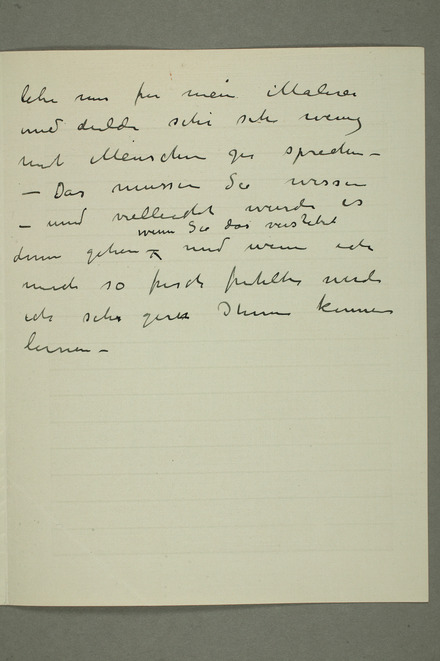 lebe nur fur mein Malerei
und dulde sehr sehr wenig
mit Menschen zu sprechen –
– Das mussen Sie wissen
– und vielleicht wurde es
wenn Sie das versteht
dann gehen – und wenn ich
mich so frisch fuhlte wurde
ich sehr gern Ihnen kennen
lernen –